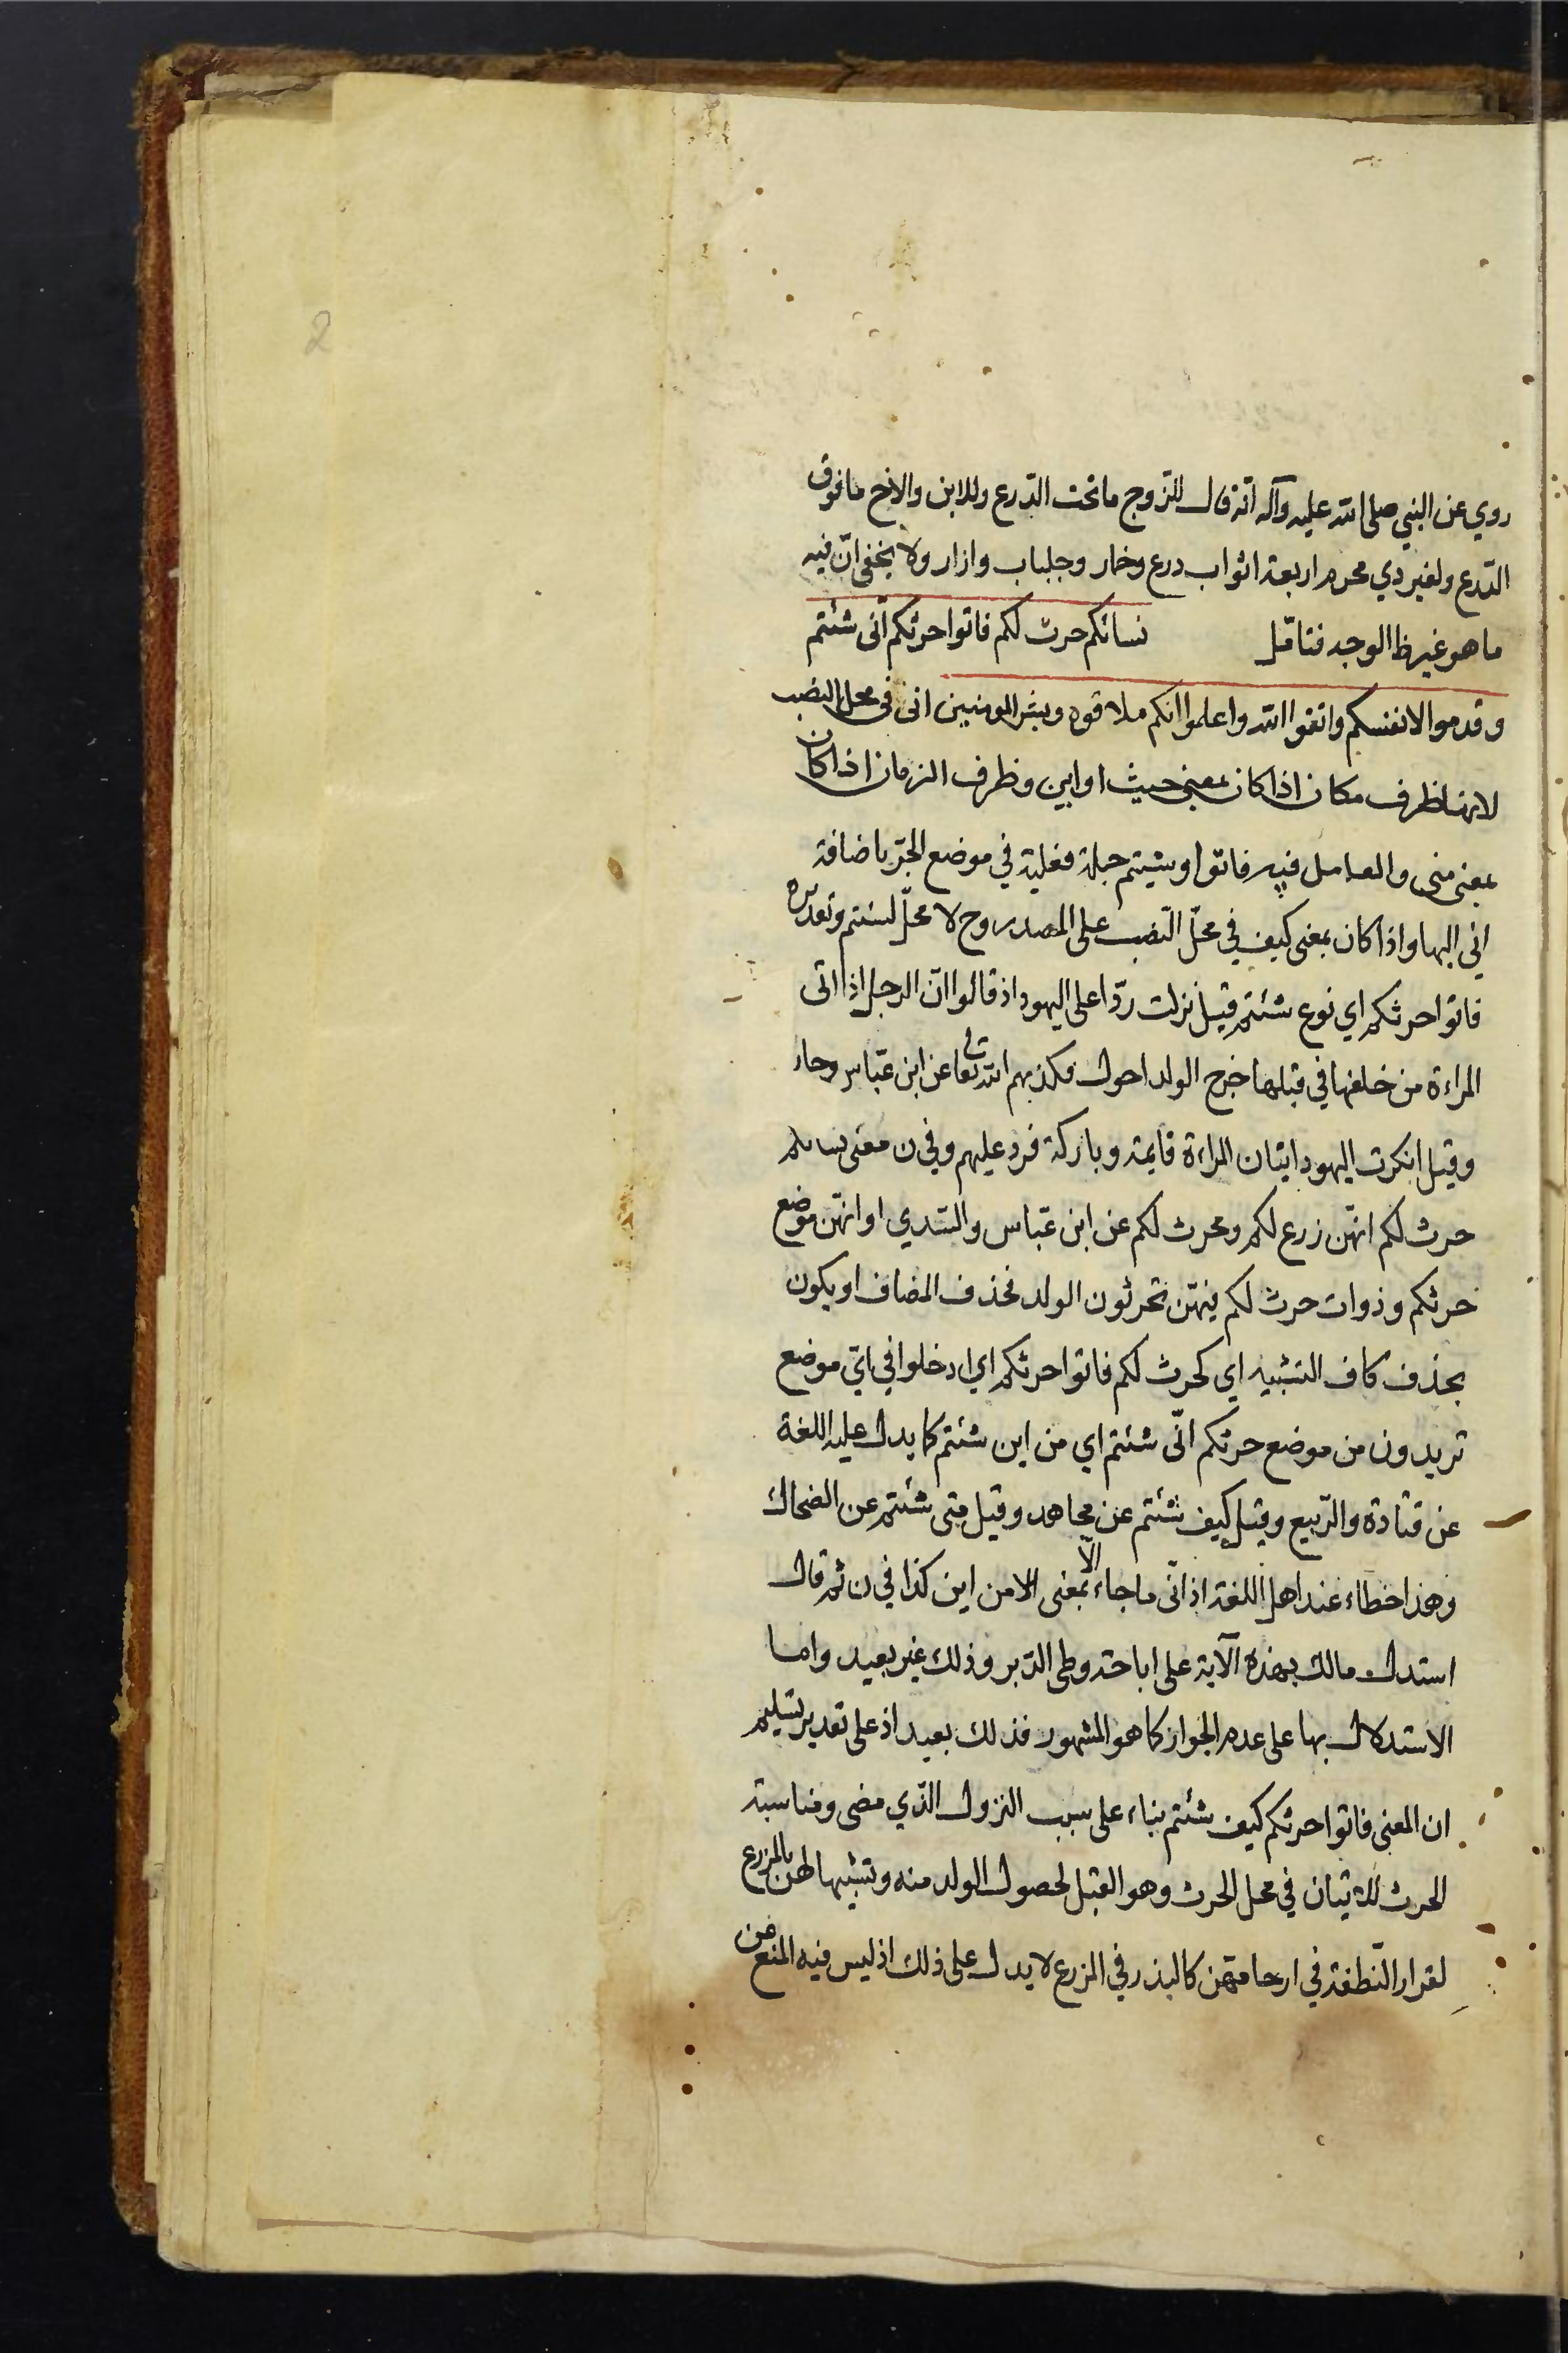 2
روي عن النبي صلى الله عليه وآله انّه قال للزّوج ما تحت الدّرع وللابن والاخ ما فوق
الدّرع ولغير ذي محرم اربعة اثواب درع وخمار وجلباب وازار ولا يخفى انّ فيه
ما هو غير ظ الوجه فتامّل نسائكم حرث لكم فاتوا حرثكم انّى شئتم
وقدموا لانفسكم واتقوا الله واعلموا انكم ملاقوه وبشر المومنين انى في محل النصب
لانها ظرف مكان اذا كان بمعنى حيث او اين وظرف الزمان اذا كان
بمعنى متى والعامل فيه فاتوا وشيتم جملة فعلية في موضع الجرّ باضافة
انى اليها واذا كان بمعنى كيف في محلّ النّصب على المصدر وح لا محلّ لشئتم وتقديره
فاتوا حرثكم اي نوع شئتم قيل نزلت ردّا على اليهود اذ قالوا انّ الرجل اذا اتى
المراءة من خلفها في قبلها خرج الولد احول فكذبهم الله تعالى عن ابن عبّاس وجابر
وقيل انكرت اليهود اتيان المراءة قايمة وباركة فرد عليهم وفي ن معنى نسائكم
حرث لكم انهّن زرع لكم ومحرث لكم عن ابن عبّاس والسّدي او انهّن موضع
حرثكم وذوات حرث لكم فيهّن تحرثون الولد فحذف المضاف او يكون
بحذف كاف التشبيه اي كحرث لكم فاتوا حرثكم اي ادخلوا في ايّ موضع
تريدون من موضع حرثكم انّى شئتم اي من اين شئتم كما يدل عليه اللغة
عن قتادة والرّبيع وقيل كيف شئتم عن مجاهد وقيل متى شئتم عن الضحاك
وهذا خطاء عند اهل اللغة اذ انّى ما جاء الّا بمعنى الا من اين كذا في ن ثم قال
استدل مالك بهذه الآية على اباحة وطى الدّبر وذلك غير بعيد واما
الاستدلال بها على عدم الجواز كما هو المشهور فذلك بعيد اذ على تقدير تسليم
ان المعنى فاتوا حرثكم كيف شئتم بناء على سبب النزول الذّي مضى ومناسبة
الحرث للاتيان في محل الحرث وهو القبل لحصول الولد منه وتشبيها لهن بالمزرع
لقرار النّطفة في ارحامهن كالبذر في المزرع لا يدل على ذلك اذ ليس فيه المنع من